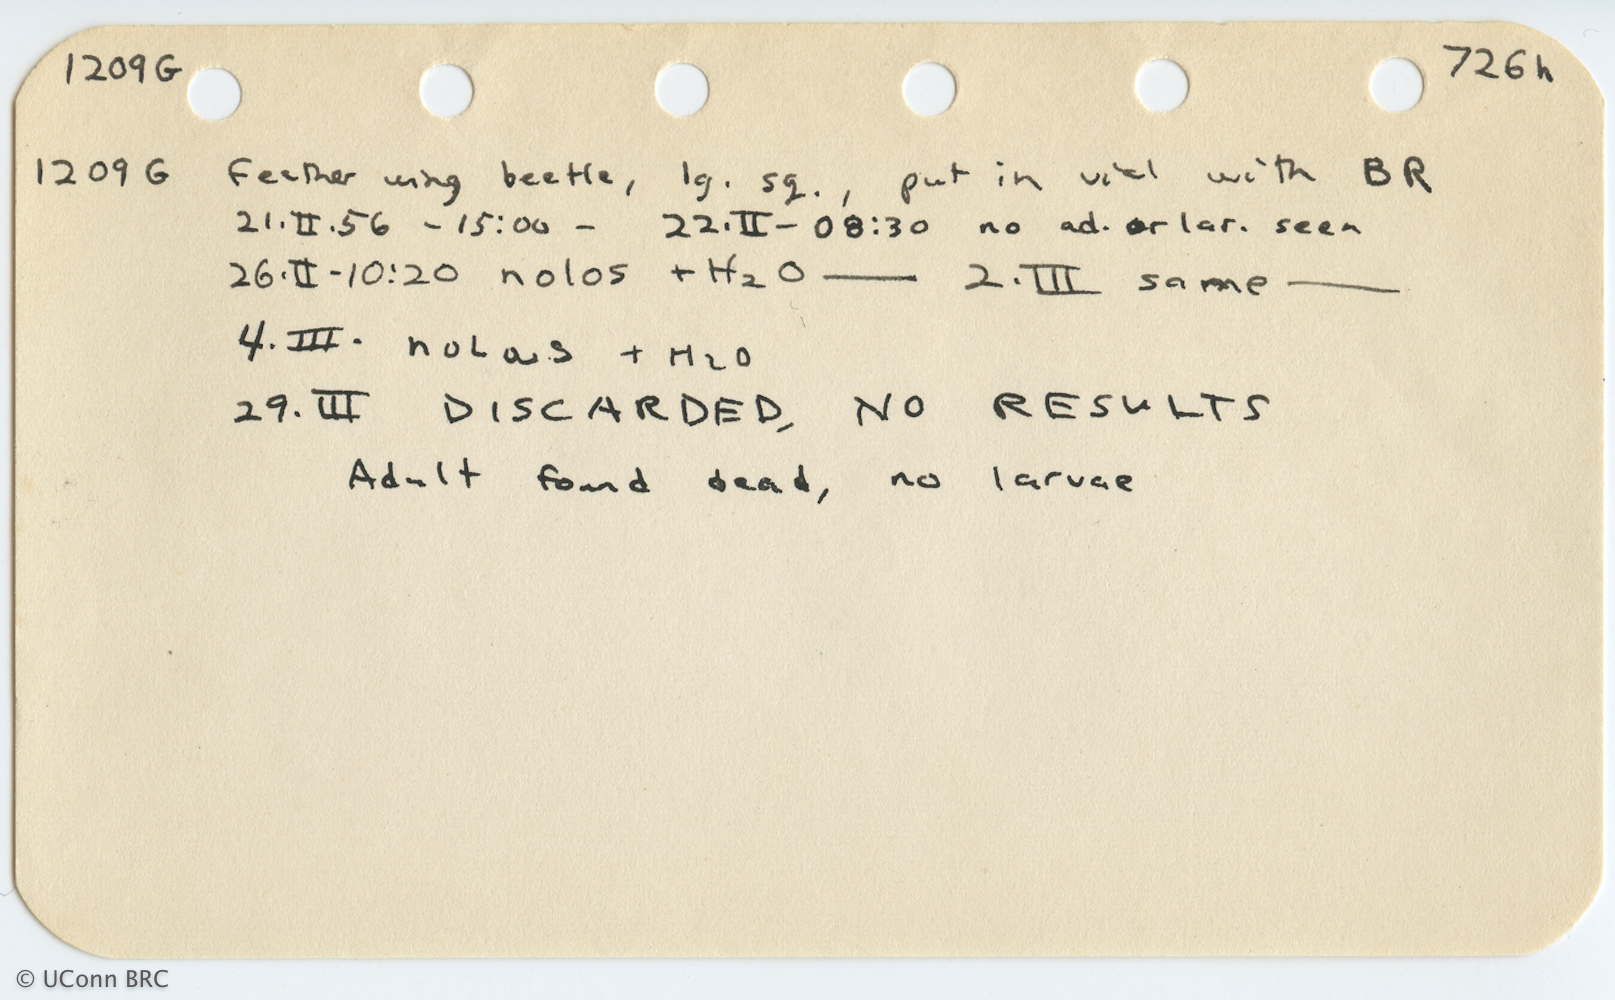 1209G 726h
1209G Feather wing beetle, lg. sq., put in vial with BR
21.II.56 - 15:00 - 22.II - 08:30 no ad. or lar. seen
26.II - 10:20 nolos + H2O —— 2.III same ——
4.III. noLos + H2O
29.III DISCARDED, NO RESULTS
Adult found dead, no larvae
© UConn BRC